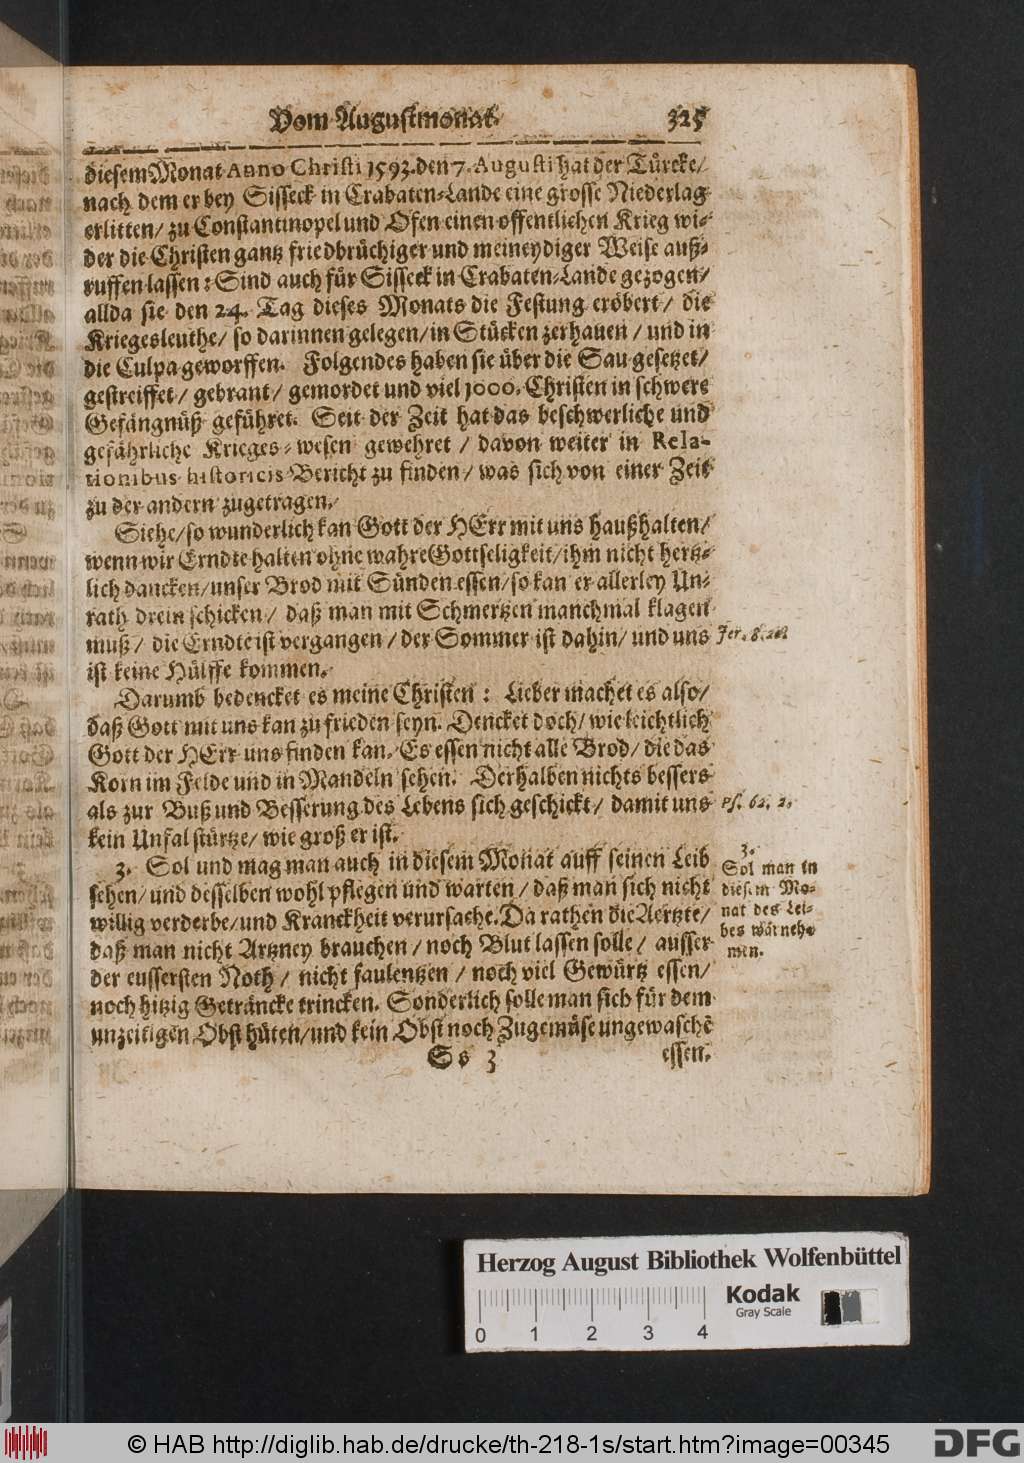 Vom Augustmonat. 325
diesem Monat Anno Christi 1593. den 7. Augusti hat der Türcke/
nach dem er bey Sisseck in Crabaten-Lande eine grosse Niederlag
erlitten/ zu Constantinopel und Ofen einen offentlichen Krieg wi-
der die Christen gantz friedbrüchiger und meineydiger Weise auß-
ruffen lassen: Sind auch für Sisseck in Crabaten-Lande gezogen/
allda sie den 24. Tag dieses Monats die Festung erobert/ die
Kriegesleuthe/ so darinnen gelegen/ in Stücken zerhauen/ und in
die Culpa geworffen. Folgendes haben sie über die Sau gesetzet/
gestreiffet/ gebrant/ gemordet und viel 1000. Christen in schwere
Gefängnüß geführet. Seit der Zeit hat das beschwerliche und
gefährliche Krieges-wesen gewehret/ davon weiter in Rela-
tionibus historicis Bericht zu finden/ was sich von einer Zeit
zu der andern zugetragen.
Siehe/ so wunderlich kan Gott der HErr mit uns haußhalten/
wenn wir Erndte halten ohne wahre Gottseligkeit/ ihm nicht hertz-
lich dancken/ unser Brod mit Sünden essen/ so kan er allerley Un-
rath drein schicken/ daß man mit Schmertzen manchmal klagen
muß/ die Erndte ist vergangen/ der Sommer ist dahin/ und uns
Jer. 8. 20.
ist keine Hülffe kommen.
Darumb bedencket es meine Christen: Lieber machet es also/
daß Gott mit uns kan zu frieden seyn. Dencket doch/ wie leichtlich
Gott der HErr uns finden kan. Es essen nicht alle Brod/ die das
Korn im Felde und in Mandeln sehen. Derhalben nichts bessers
als zur Buß und Besserung des Lebens sich geschickt/ damit uns
Ps. 62. 2.
kein Unfal stürtze/ wie groß er ist.
3. Sol und mag man auch in diesem Monat auff seinen Leib
sehen/ und desselben wohl pflegen und warten/ daß man sich nicht
willig verderbe/ und Kranckheit verursache. Da rathen die Aertzte/
daß man nicht Artzney brauchen/ noch Blut lassen solle/ ausser
der eussersten Noth/ nicht faulentzen/ noch viel Gewürtz essen/
noch hitzig Geträncke trincken. Sonderlich solle man sich für dem
unzeitigen Obst hüten/ und kein Obst noch Zugemüse ungewaschē
3.
Sol man in
diesem Mo-
nat des Lei-
bes wårneh-
men.
Ss 3 essen.
Herzog August Bibliothek Wolfenbüttel
Kodak
Gray Scale
0 1 2 3 4
© HAB http://diglib.hab.de/drucke/th-218-1s/start.htm?image=00345
DFG